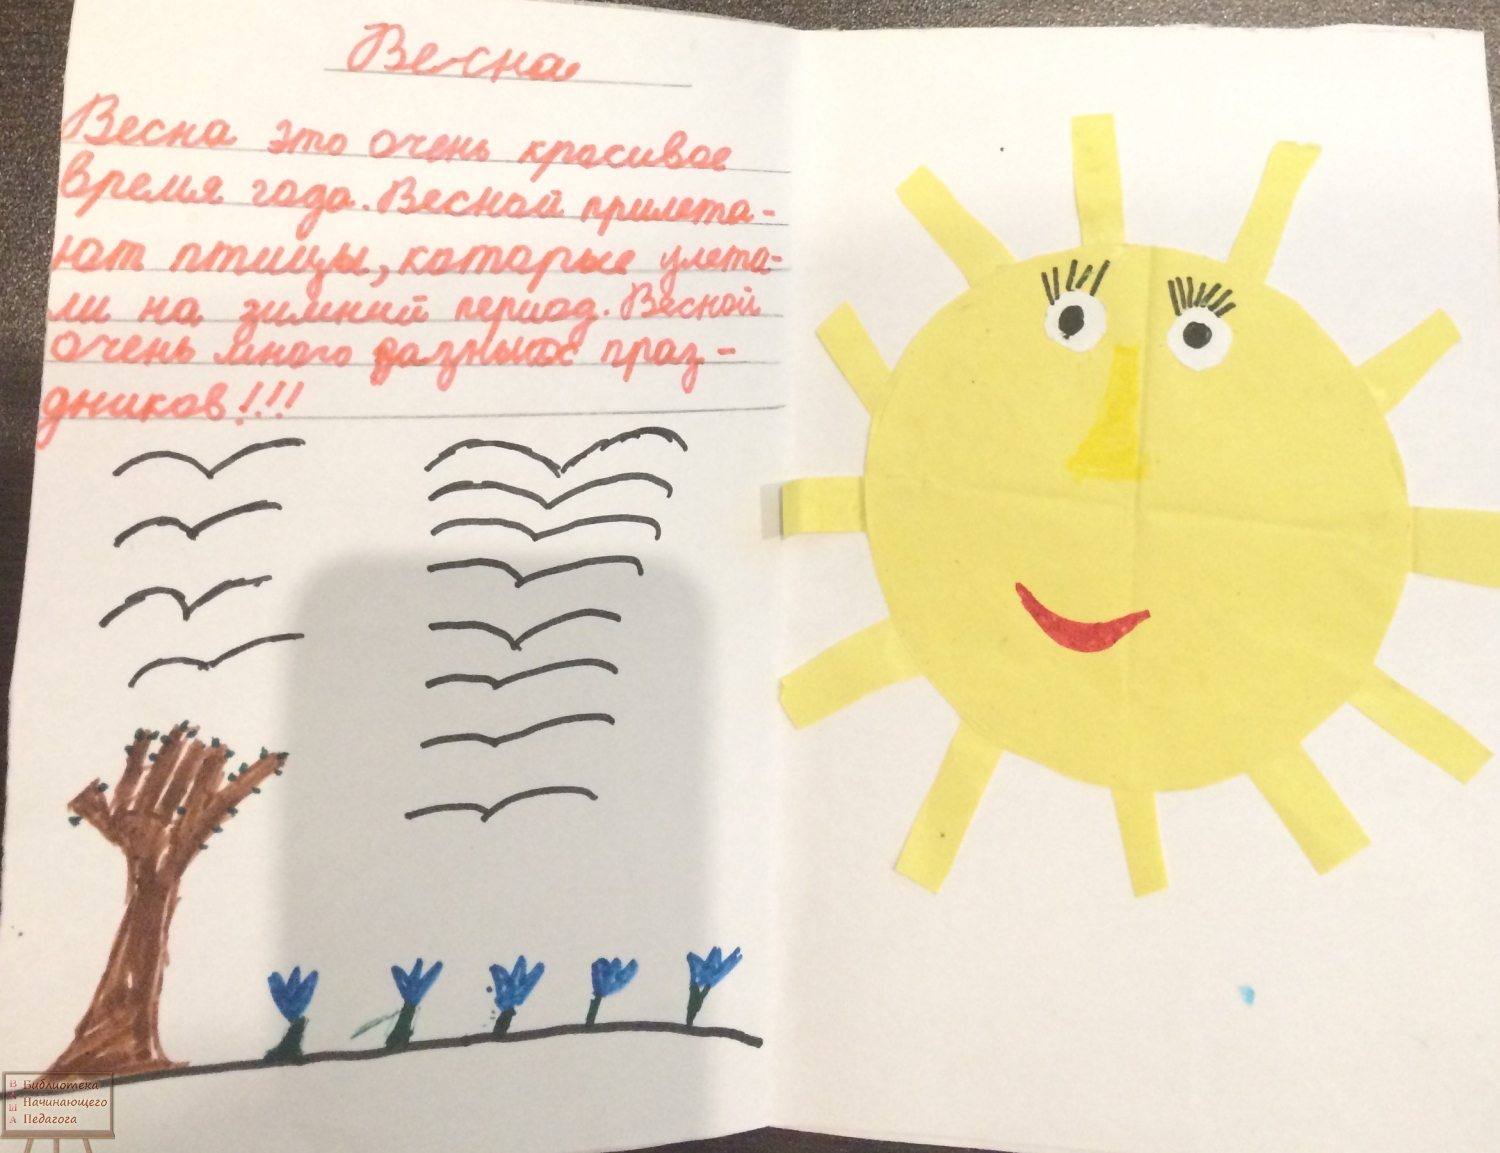 Весна
Весна это очень красивое
время года. Весной прилета-
ют птицы, которые улета-
ли на зимний период. Весной
очень много разных праз-
дников!!!
ВАША
Библиотека
Начинающего
Педагога